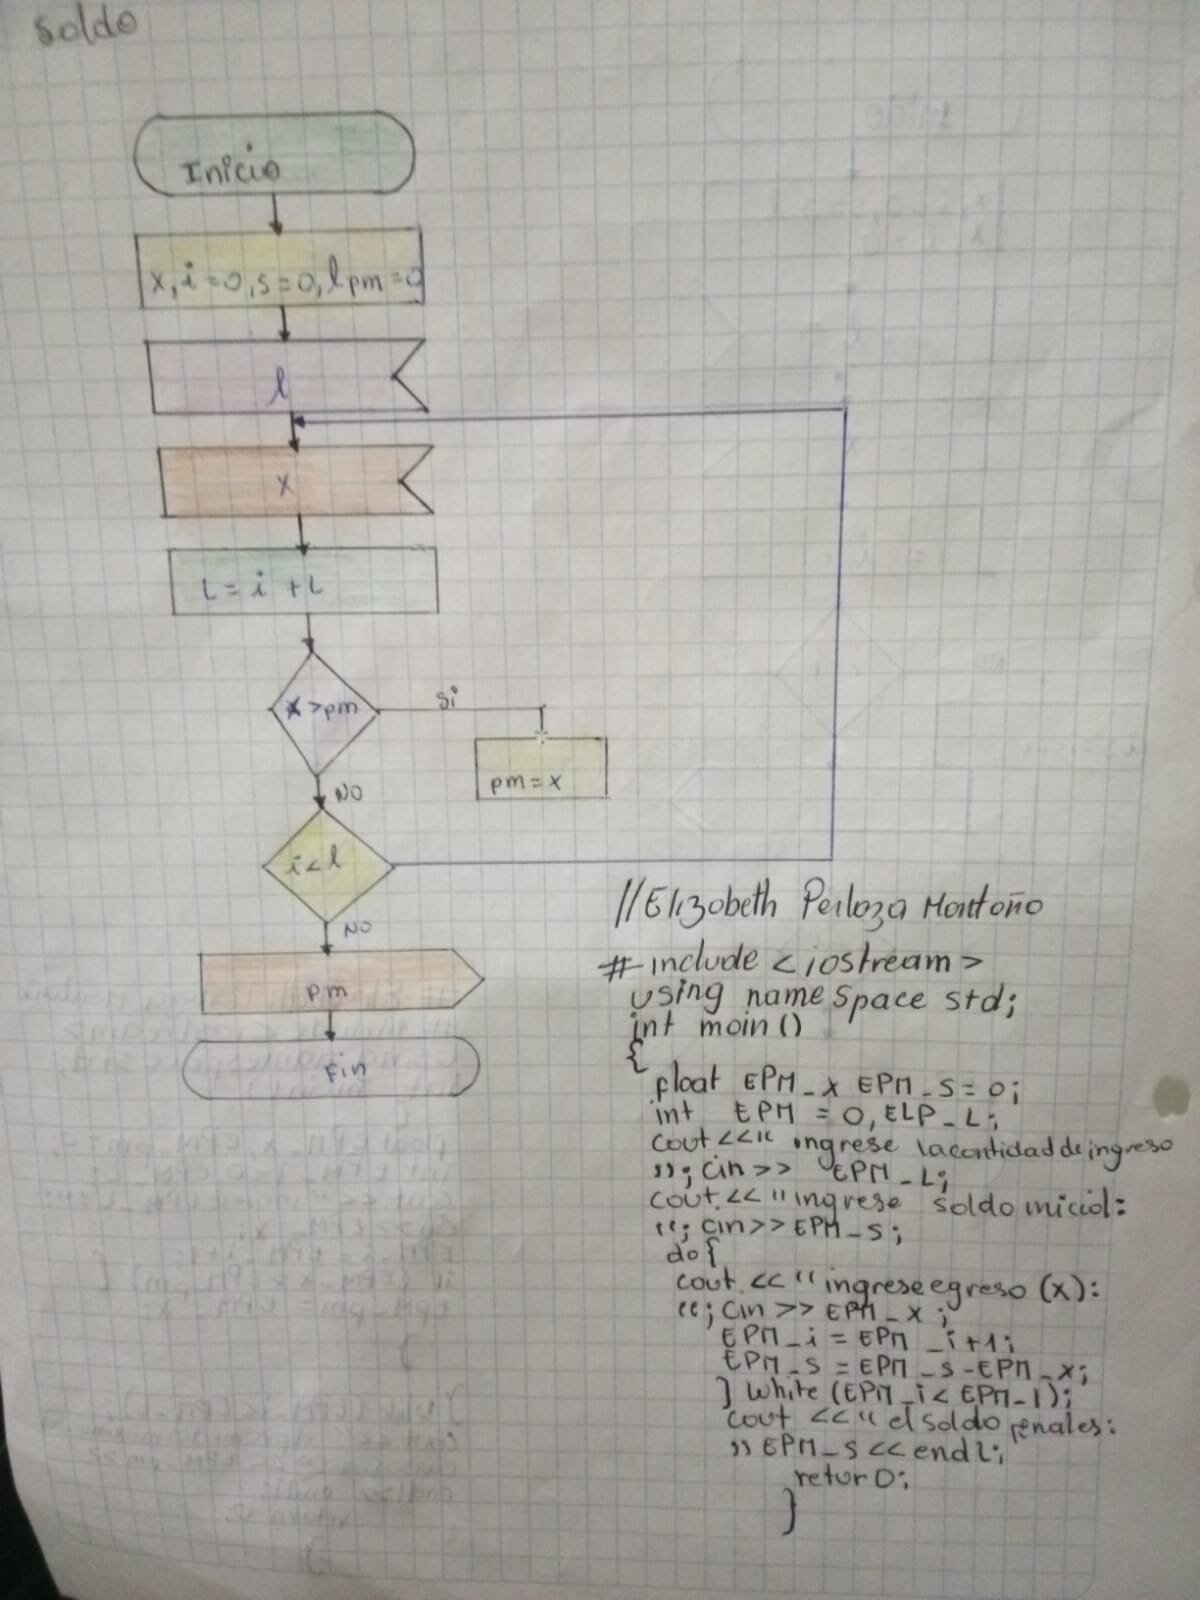 soldo
Inicio
x, i=0, s=0, l pm=0
l
x
L = i + L
x > pm
si
pm = x
NO
i < l
NO
pm
Fin
//Elizobeth Montoño
# include <iostream>
using name space std;
int moin ()
{
float EPM_x EPM_s = 0;
int EPM = 0, ELP_L;
cout <<" ingrese la contidad de ingreso
"; cin >> EPM_L;
cout << "ingrese soldo iniciol:
"; cin >> EPM_s;
do {
cout << "ingrese egreso (x):
"; cin >> EPM_x;
EPM_i = EPM_i+1;
EPM_s = EPM_s - EPM_x;
} white (EPM_i < EPM_l);
cout << "el soldo fenales:
" EPM_s << endl;
retur 0;
}